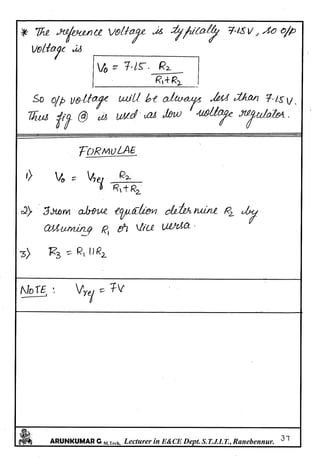 * The reference voltage is typically 7.15V, so o/p
voltage is
V₀ = 7.15 . R₂ / R₁+R₂
So o/p voltage will be always less than 7.15V.
Thus fig ⓐ is used as low voltage regulator.
FORMULAE
1) V₀ = Vref R₂ / R₁+R₂
2) From above equation determine R₂ by
assuming R₁ or vice versa.
3) R₃ = R₁ || R₂
NOTE : Vref = 7V
ARUNKUMAR G M.Tech, Lecturer in E&CE Dept. S.T.J.I.T., Ranebennur. 37